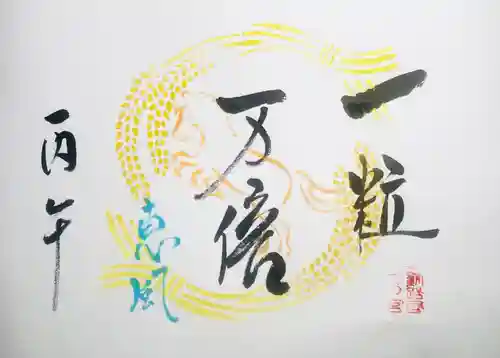 一粒
万倍
恵風
丙午